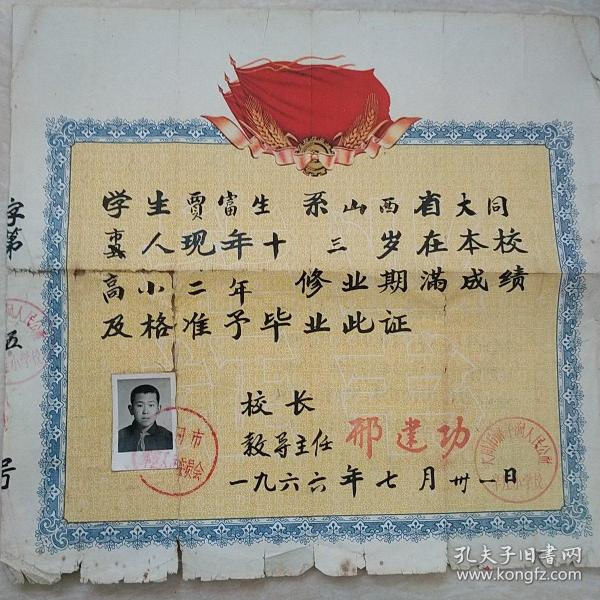 学生贾富生系山西省大同
市县人现年十三岁在本校
高小二年修业期满成绩
及格准予毕业此证
校长
教导主任 邢建功
一九六六年七月卅一日
字第
五
号
同市
委员会
人民公社
学校
孔夫子旧书网
www.kongfz.com